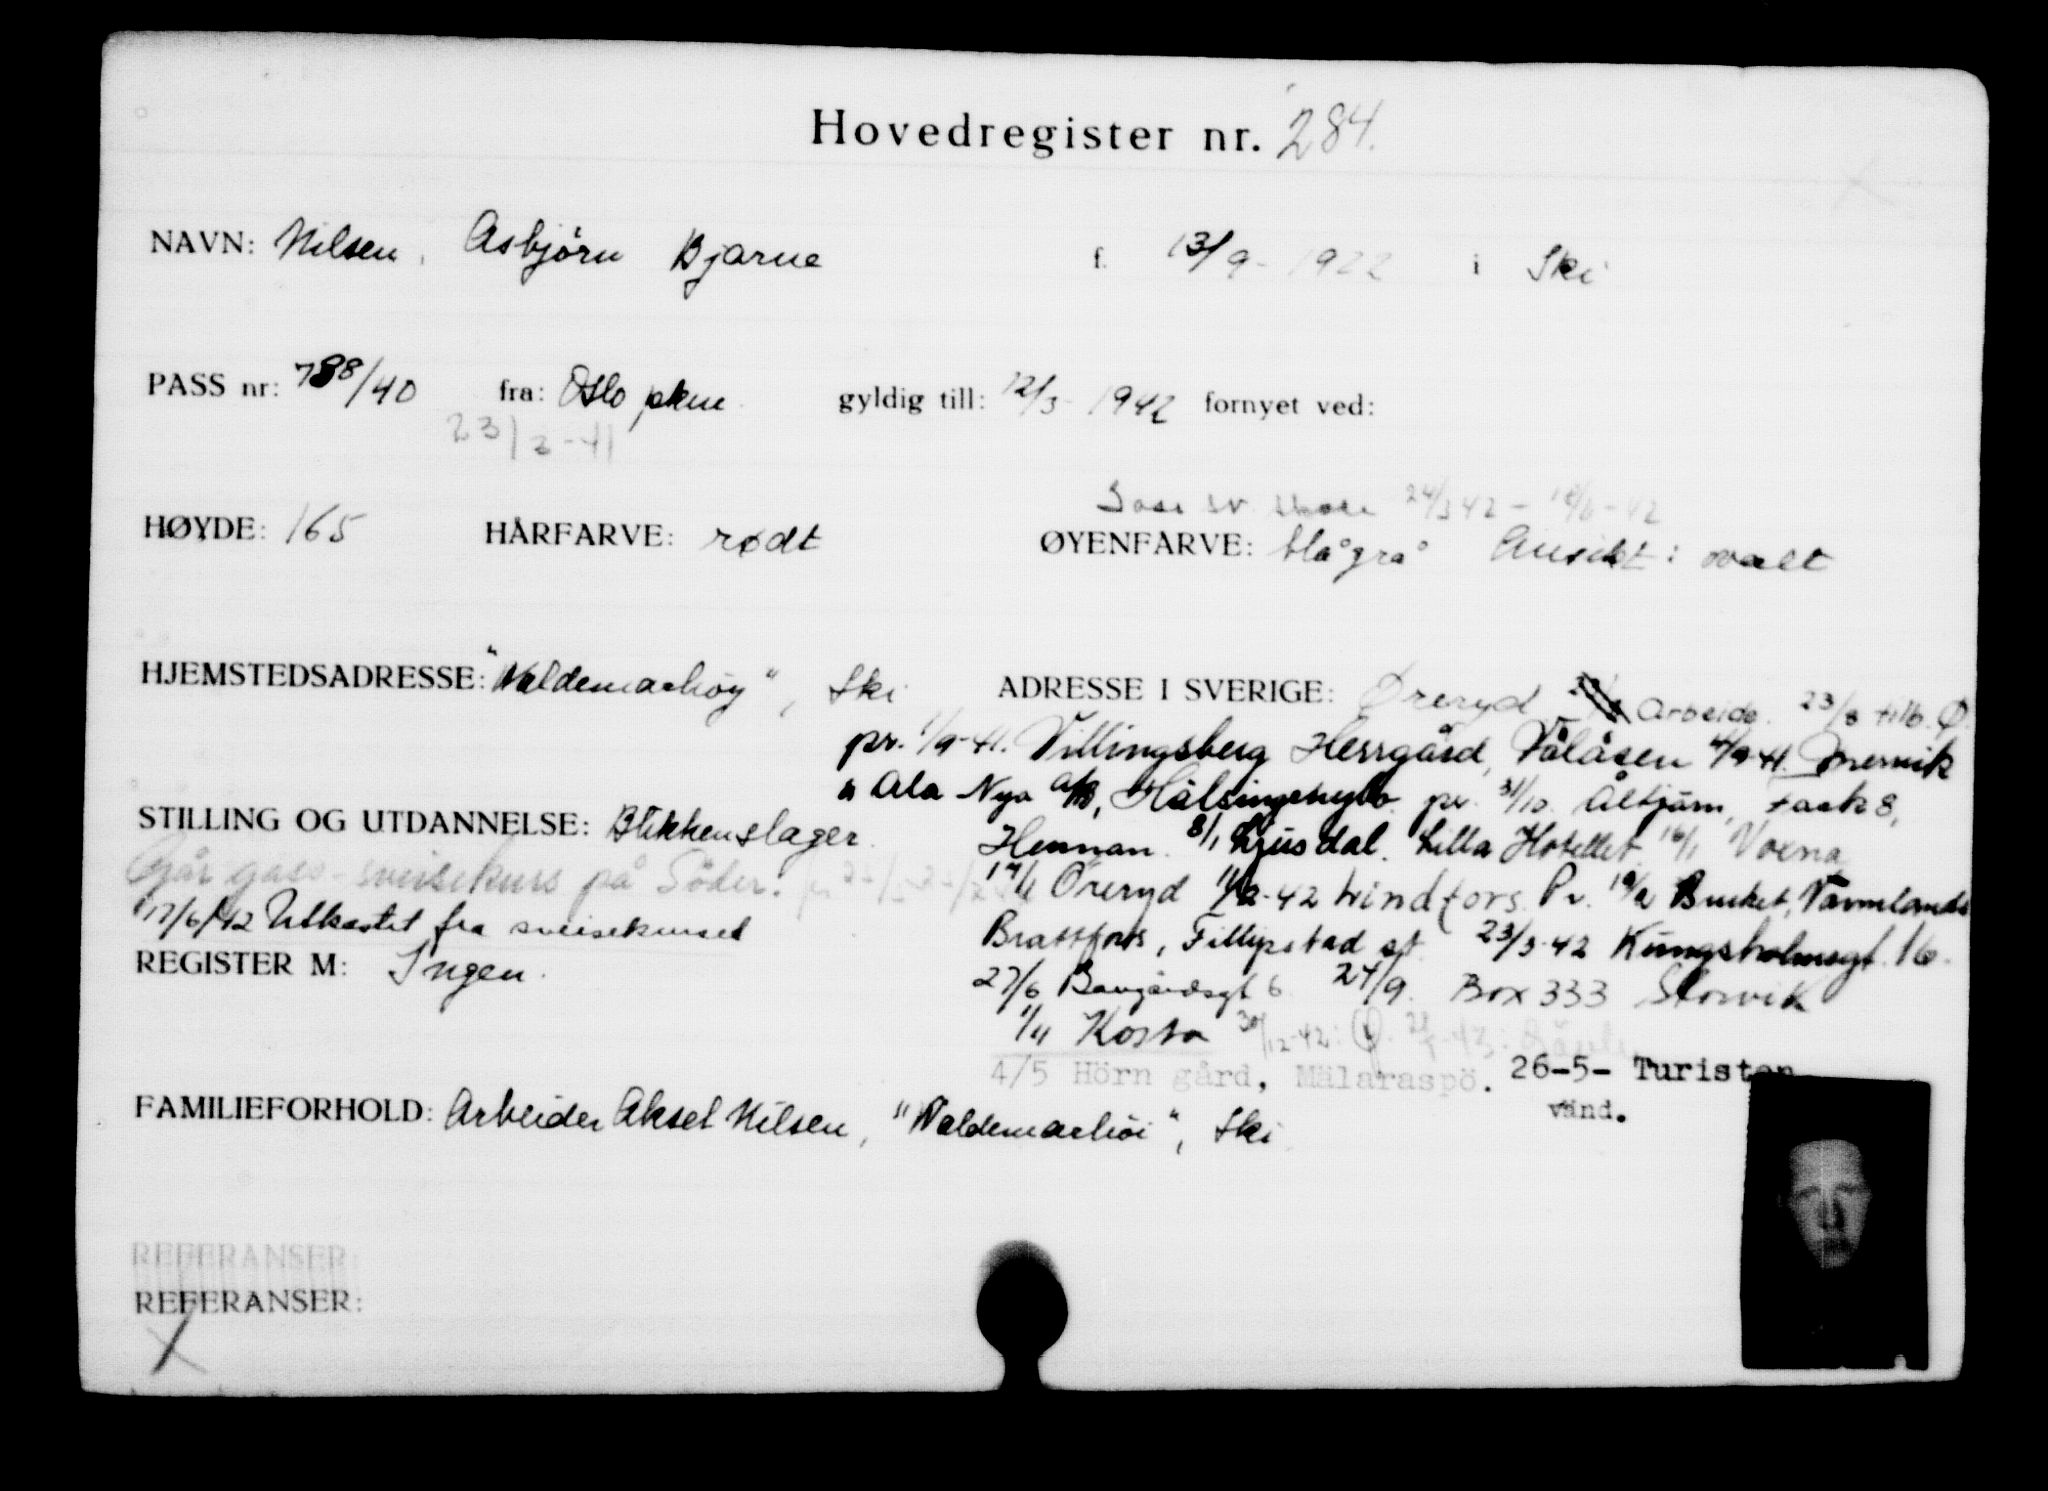 Hovedregister nr. 284.
NAVN: Nilsen, Asbjörn Bjarne f. 13/9- 1922 i Ski
PASS nr: 788/40 fra: Oslo pkm gyldig till: 12/3- 1942 fornyet ved:
23/2-41
24/3 42 - 18/6-42
HØYDE: 165 HÅRFARVE: rødt ØYENFARVE: blågrå Ansikt: ovalt
HJEMSTEDSADRESSE: "Waldemarhöy", Ski ADRESSE I SVERIGE: Øreryd Arbeide. 23/8 tilb. Ø.
pr. 1/9-41. Villingsberg Herrgård, Vålåsen 4/9-41.
Ala Nya A/B, pr. 31/10. fack 8,
STILLING OG UTDANNELSE: Blikkenslager.
Hennan. 8/1 Ljusdal. Lilla Hotellet. 16/1 Voxna
Går gass-sveisekurs på Söder.
17/1 Öreryd 11/2-42 Lindfors. Pr. 19/2 Värmlands
17/6/42 Utkastet fra sveisekurset
Brattfors, Fillipstad 23/3-42 Kungsholmsgt. 16.
REGISTER M: Ingen.
27/6 6. 24/9. Box 333 Storvik
1/11 Kosta 30/12-42: Ø.
4/5 Hörn gård, Mälaraspö. 26-5- Turisten
vänd.
FAMILIEFORHOLD: Arbeider Aksel Nilsen, "Waldemarhöi", Ski
REFERANSER:
REFERANSER: